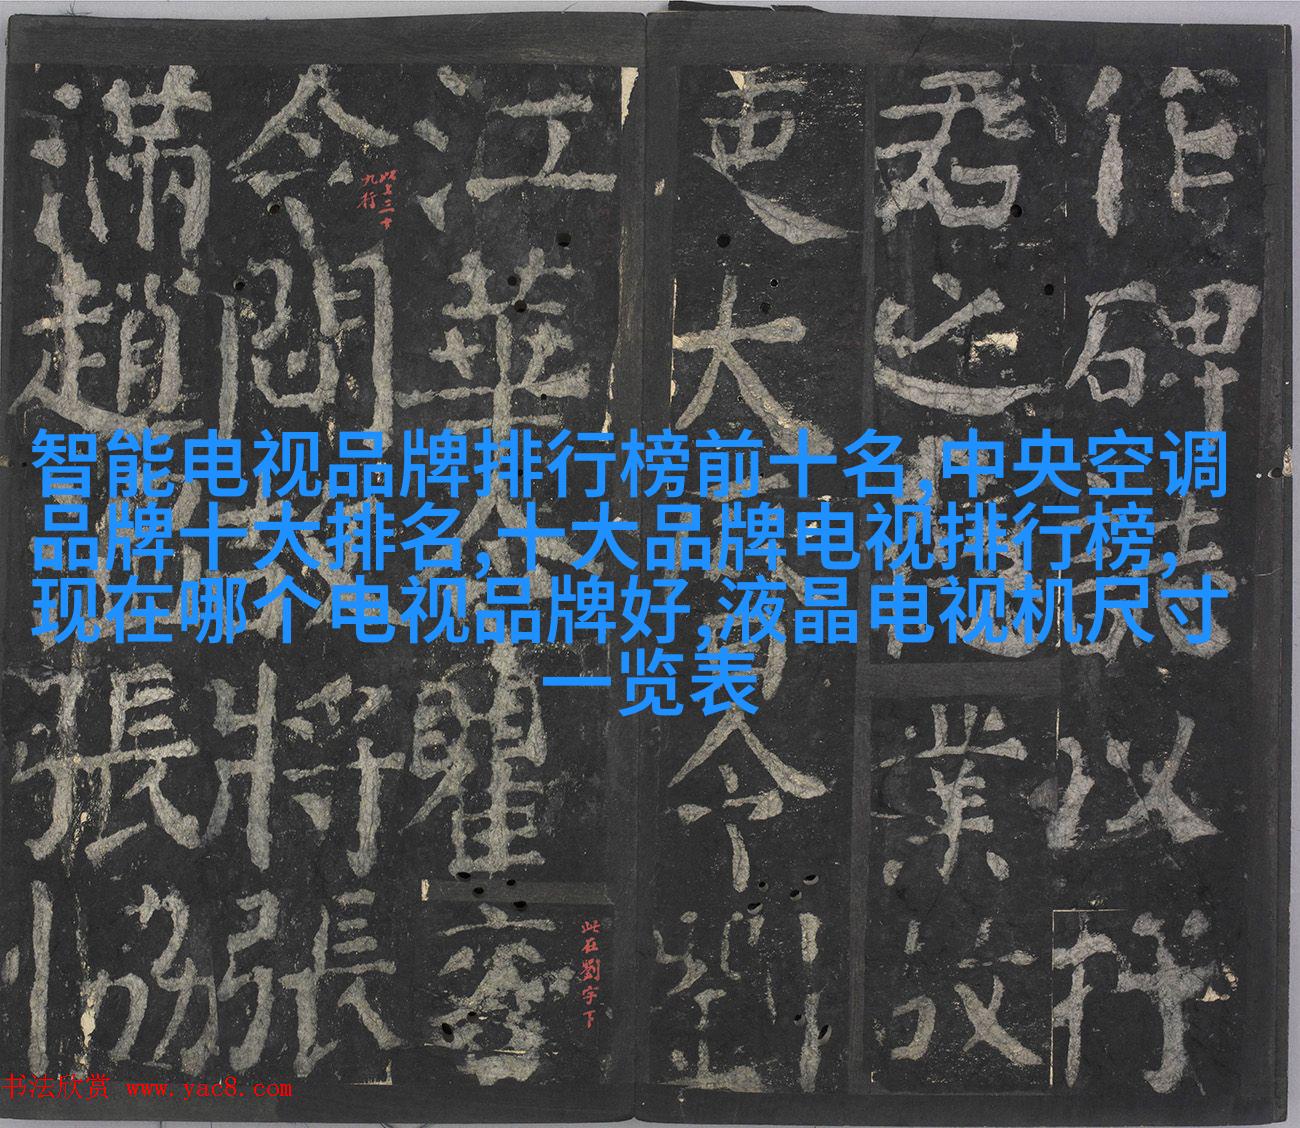 智能电视品牌排行榜前十名,中央空调
品牌十大排名,十大品牌电视排行榜,
现在哪个电视品牌好,液晶电视机尺寸
一览表
作碑以
君之業故
吏大令劉
江華瞿
令閻將張
滿趙張協
九行
此在劉字下
书法欣赏 www.yac8.com